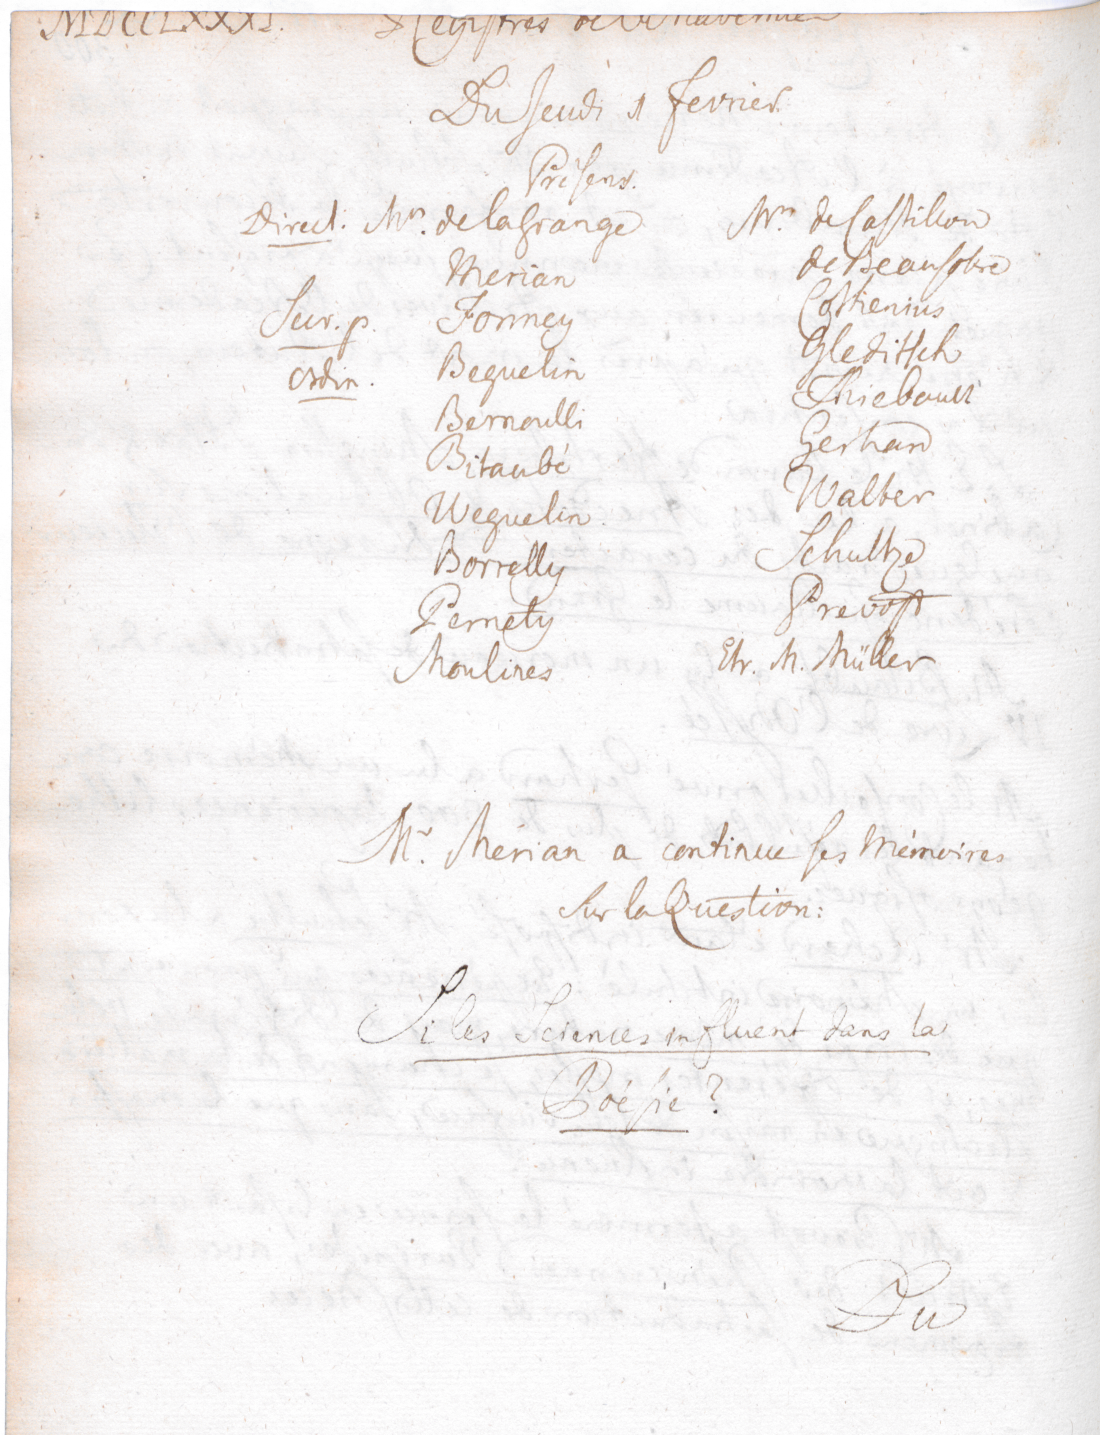 MDCCLXXXI. Registres de l'Academie
Du Jeudi 1 Fevrier.
Présens.
Direct. Mrs. de la Grange
Merian
Secr. p. Formey
Ordin. Beguelin
Bernoulli
Bitaubé
Weguelin.
Borrelly
Pernety
Moulines
Mrs. de Castillon
de Beausobre
Cothenius
Gleditsch
Thiebault
Gerhard
Walter
Schultze
Prevost
Etr. M. Müller
Mr. Mérian a continué ses Mémoires
sur la Question:
Si les Sciences influent dans la
Poésie?
Du